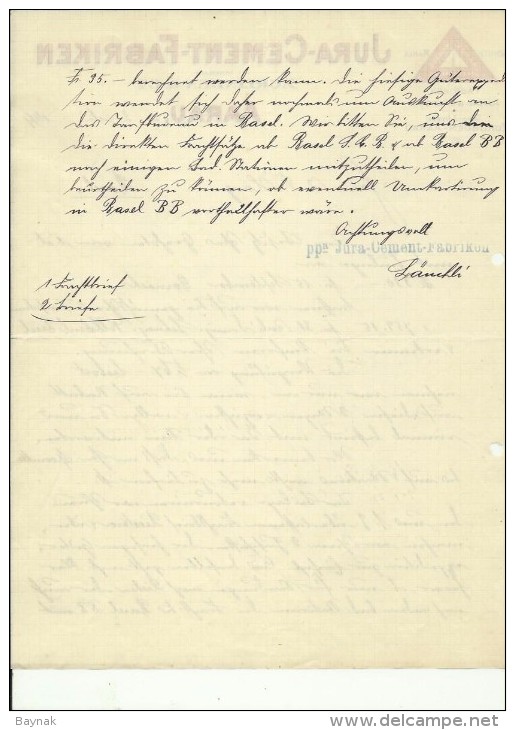 Fr 95.– berechnet werden kann. Die hiesige Güterexpedi-
tion wendet sich daher nochmals um Auskunft an
das Tarifbureau in Basel. Wir bitten Sie, uns dann
die direkten Frachtsätze ab Basel S.C.B & ab Basel BB
nach einigen Bad. Stationen mitzutheilen, um
beurtheilen zu können, ob eventuell Umkartirung
in Basel BB vortheilhafter wäre.
Achtungsvoll
ppa Jura-Cement-Fabriken
1 Frachtbrief
2 Briefe
Baynak
www.delcampe.net